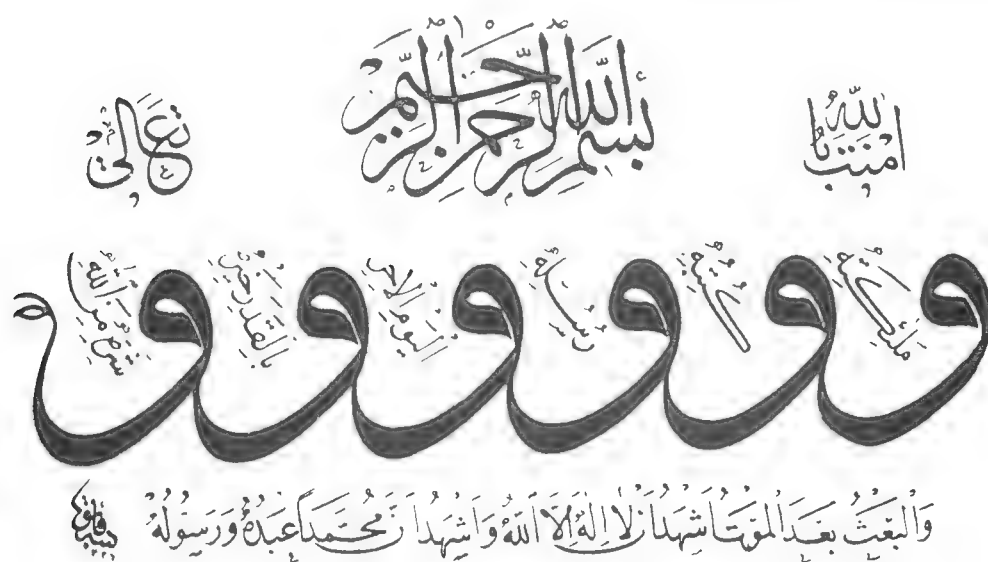 بسم الله الرحمن الرحيم
امنت بالله تعالى
و ملئكته و كتبه و رسله و اليوم الاخر و بالقدر خيره و شره من الله
والبعث بعد الموت اشهد ان لا اله الا الله واشهد ان محمدا عبده ورسوله